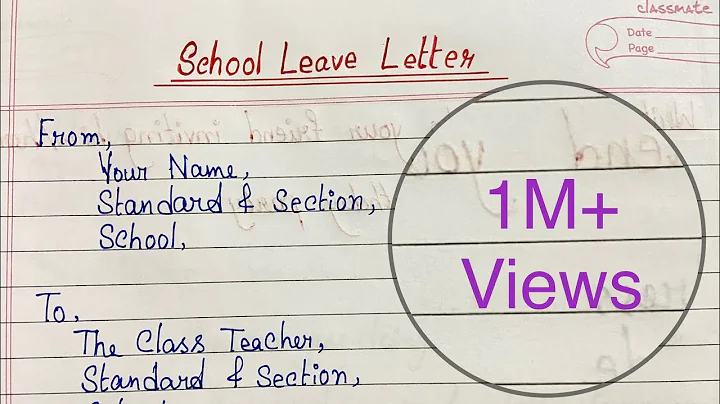 classmate
Date
Page
School Leave Letter
From,
Your Name,
Standard & Section,
School,
1M+
Views
To,
The Class Teacher,
Standard & Section,